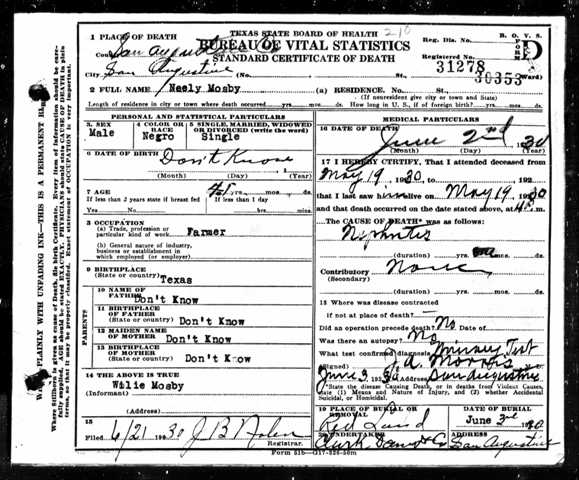 TEXAS STATE BOARD OF HEALTH
BUREAU OF VITAL STATISTICS
STANDARD CERTIFICATE OF DEATH
210
Reg. Dis. No.
B. O. V. S.
FORM D
Registered No.
31278
30353
1 PLACE OF DEATH
San Augustine Co
City San Augustine (No. St., Ward)
2 FULL NAME Neely Mosby (a) RESIDENCE. No. St.,
(If nonresident give city or town and State)
Length of residence in city or town where death occurred yrs. mos. ds. How long in U. S., if of foreign birth? yrs. mos. ds.
PERSONAL AND STATISTICAL PARTICULARS
3. SEX
Male
4 COLOR OR RACE
Negro
5 SINGLE, MARRIED, WIDOWED OR DIVORCED (write the word)
Single
6 DATE OF BIRTH
Don't Know
(Month) (Day) (Year)
7 AGE
If less than 2 years state if breast fed
If less than 1 day
Yes No hrs. min.
8 OCCUPATION
(a) Trade, profession or particular kind of work
Farmer
(b) General nature of industry, business or establishment in which employed (or employer)
9 BIRTHPLACE
(State or country) Texas
PARENTS
10 NAME OF FATHER Don't Know
11 BIRTHPLACE OF FATHER
(State or country) Don't Know
12 MAIDEN NAME OF MOTHER Don't Know
13 BIRTHPLACE OF MOTHER
(State or country) Don't Know
14 THE ABOVE IS TRUE
Wilie Mosby
(Informant)
(Address)
15
Filed 6/21 1930 J B Nolen
MEDICAL PARTICULARS
16 DATE OF DEATH
June 2nd 1930
(Month) (Day) (Year)
17 I HEREBY CERTIFY, That I attended deceased from
May 19 1930, to 192
that I last saw him alive on May 19 1930
and that death occurred on the date stated above, at m.
The CAUSE OF DEATH* was as follows:
Nephritis
(duration) yrs. mos. ds.
Contributory None
(Secondary)
(duration) yrs. mos. ds.
18 Where was disease contracted
if not at place of death?
Did an operation precede death? No Date of
Was there an autopsy? No
What test confirmed diagnosis? Urinary Test
(Signed)
June 3, 1930 (Address) San Augustine
*State the Disease Causing Death, or in deaths from Violent Causes, state (1) Means and Nature of Injury, and (2) whether Accidental Suicidal, or Homicidal.
19 PLACE OF BURIAL OR REMOVAL
Red Land
DATE OF BURIAL
June 3rd 1930
20 UNDERTAKER
ADDRESS
San Augustine
Form 51b—G17-526-50m